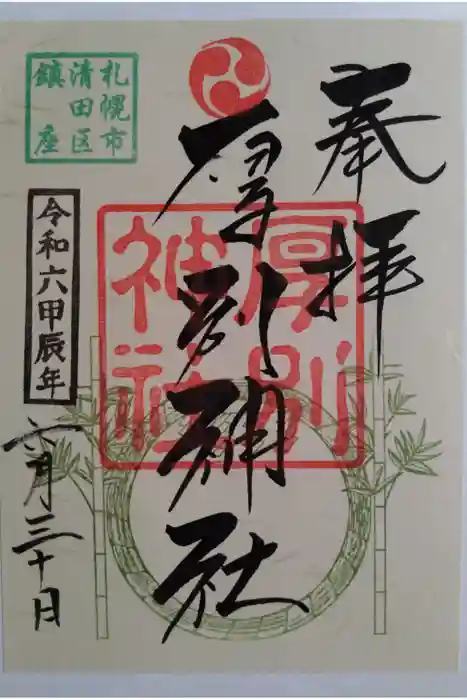 奉拝
厚別神社
厚別
神社
札幌市
清田区
鎮座
令和六甲辰年
六月三十日